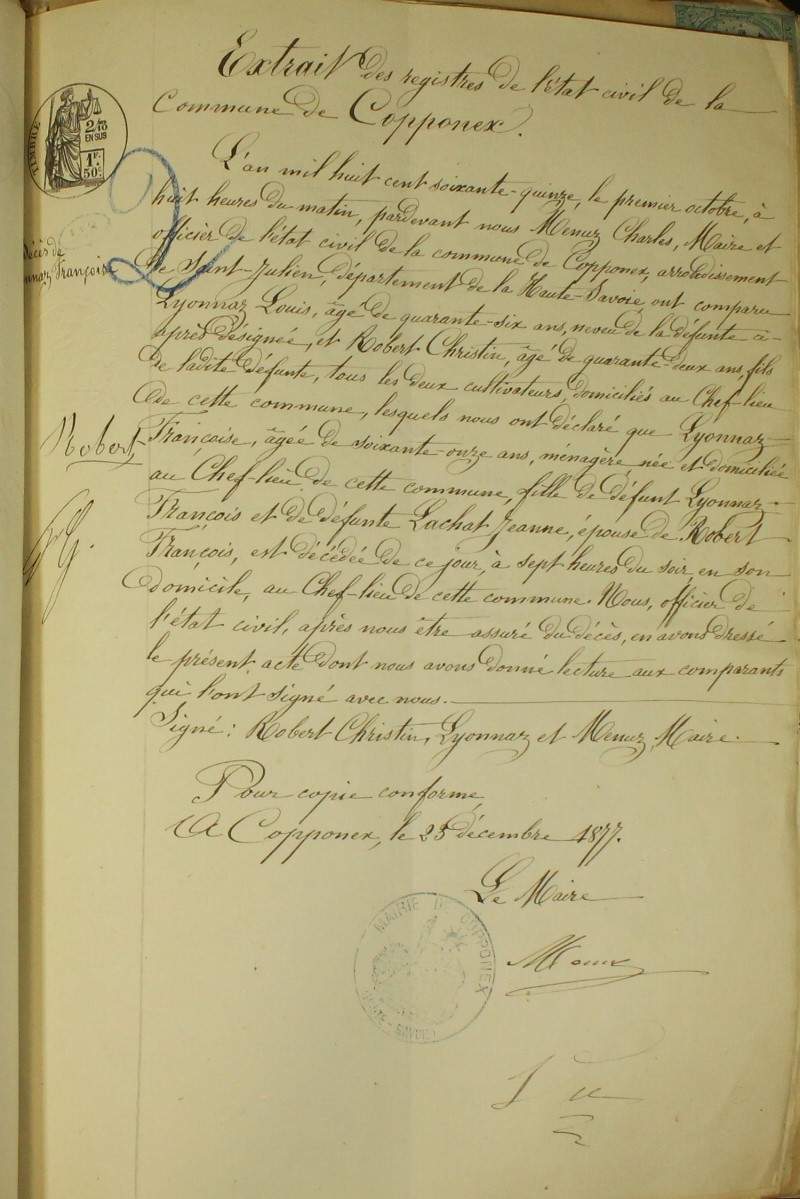 Extrait des registres de l'état civil de la
Commune de Copponex.
TIMBRE
2/10
EN SUS
1F.
50C.
L'an mil huit cent soixante-quinze, le premier octobre, à
huit heures du matin, pardevant nous Menuz Charles, Maire et
officier de l'état civil de la commune de Copponex, arrondissement
de Saint-Julien, département de la Haute-Savoie, ont comparu
Lyonnaz Louis, âgé de quarante-six ans, neveu de la défunte ci-
après désignée, et Robert Christin, âgé de quarante-deux ans, fils
de ladite défunte, tous les deux cultivateurs, domiciliés au Chef-lieu
de cette commune, lesquels nous ont déclaré que Lyonnaz
Françoise, âgée de soixante-onze ans, ménagère née et domiciliée
au Chef-lieu de cette commune, fille de défunt Lyonnaz
François et de défunte Lachat Jeanne, épouse de Robert
François, est décédée de ce jour, à sept heures du soir, en son
domicile, au Chef-lieu de cette commune. Nous, officier de
l'état civil, après nous être assuré du décès, en avons dressé
le présent acte dont nous avons donné lecture aux comparants
qui l'ont signé avec nous.
Signé: Robert Christin, Lyonnaz et Menuz, Maire.
Décès de
Françoise
Robert
Pour copie conforme,
A Copponex, le 25 décembre 1877.
Le Maire
Menuz
MAIRIE DE COPPONEX